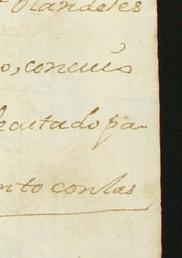 olandeses
o, concuio
ecutado pa-
nto con las